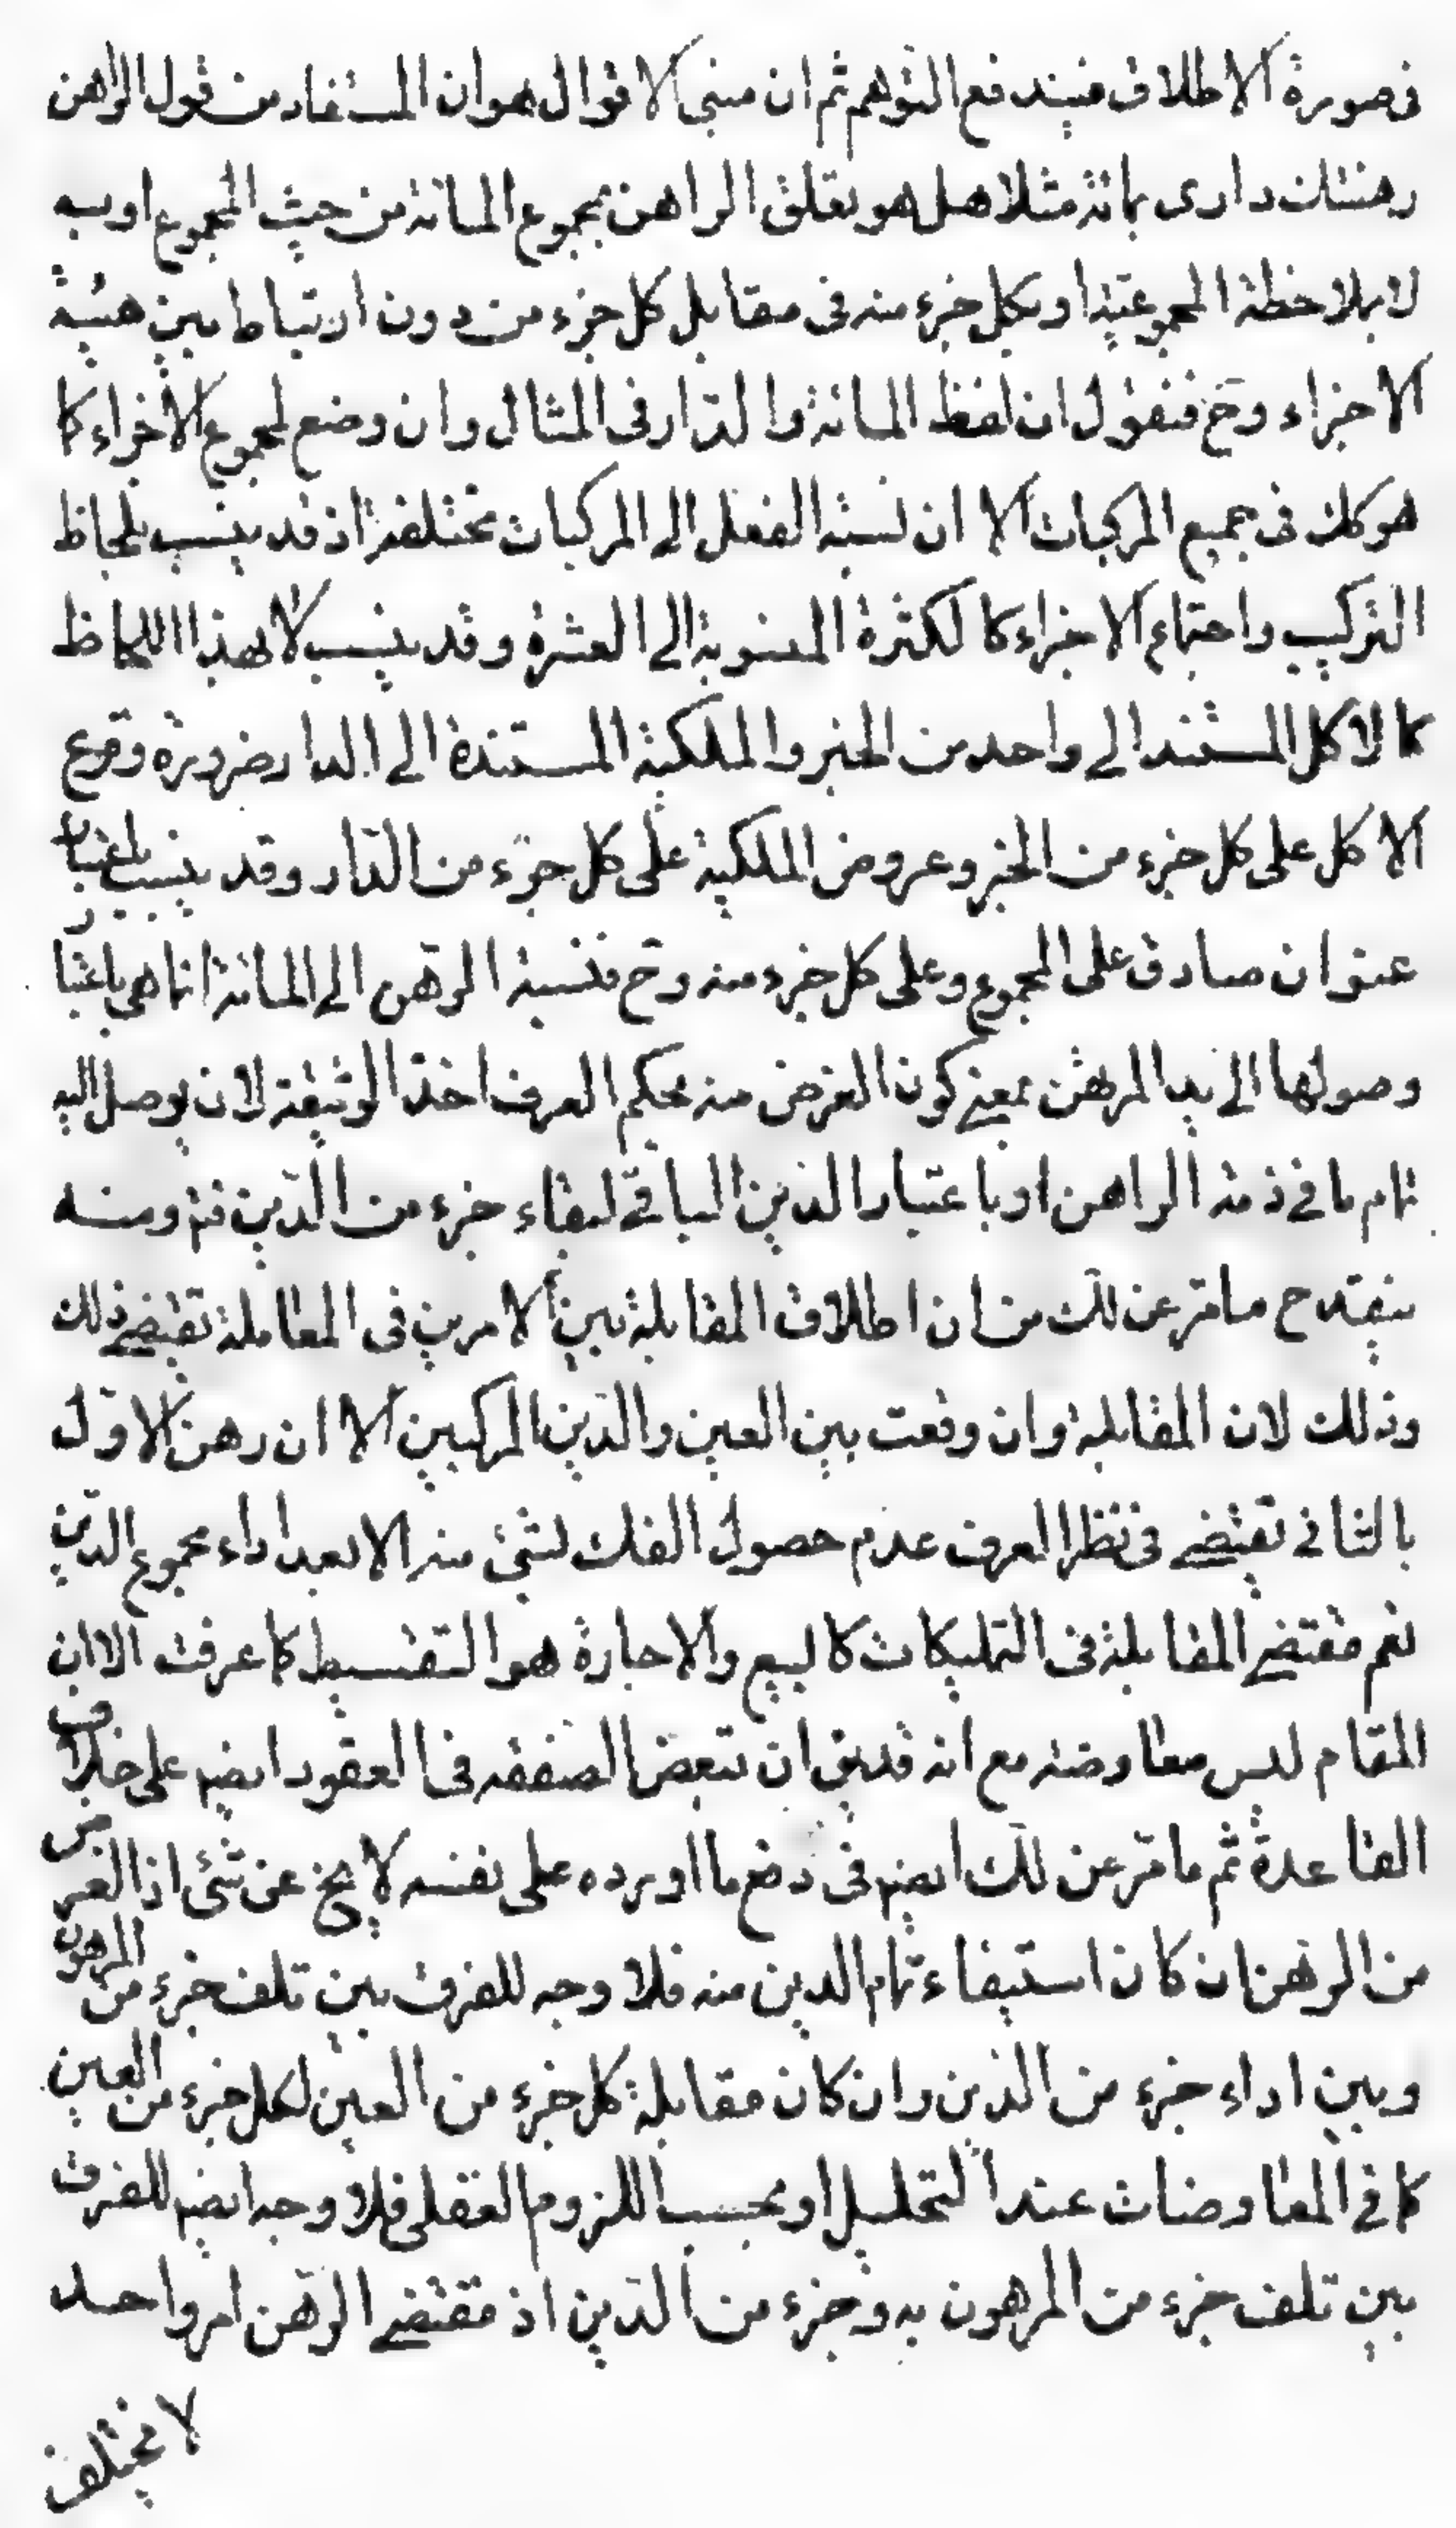 فى صورة الاطلاق فيندفع التوهم ثم ان مبنى الاقوال هو ان المستفاد من قول الراهن
رهنتك دارى بمائة مثلا هل هو تعلق الراهن بمجموع المائة من حيث المجموع او به
لا بملاحظة المجموعية او بكل جزء منه فى مقابل كل جزء من دون ارتباط بين هيئة
الاجزاء وح فنقول ان لفظ المائة والدار فى المثال وان وضع لمجموع الاجزاء كما
هو كك فى جميع المركبات الا ان نسبة الفعل الى المركبات مختلفة اذ قد ينسب بلحاظ
التركيب واجتماع الاجزاء كالكثرة المنسوبة الى العشرة وقد ينسب لا بهذا اللحاظ
كالاكل المستند الى واحد من الخبز والملكية المستندة الى الدار ضرورة وقوع
الاكل على كل جزء من الخبز وعروض الملكية على كل جزء من الدار وقد ينسب باعتبار
عنوان صادق على المجموع وعلى كل جزء منه وح فنسبة الرهن الى المائة انما هى باعتبا
وصولها الى يد المرتهن بمعنى كون الغرض منه بحكم العرف اخذ الوثيقة لان يوصل اليه
تمام ما فى ذمة الراهن او باعتبار الدين الباقى لبقاء جزء من الدين فتم ومنه
ينقدح ما مر عن لك من ان اطلاق المقابلة بين الامرين فى المعاملة تقتضى ذلك
وذلك لان المقابلة وان وقعت بين العين والدين المركبين الا ان رهن الاول
بالثانى تقتضى فى نظر العرف عدم حصول الفك لشئ منه الا بعد اداء مجموع الدين
نعم مقتضى المقابلة فى التمليكات كالبيع والاجارة هو التقسيط كما عرفت الا ان
المقام ليس معاوضة مع انه قد يق ان تبعض الصفقه فى العقود ايضا على خلاف
القاعدة ثم ما مر عن لك ايضا فى دفع ما اورده على نفسه لا يخ عن شئ اذ الغرض
من الرهن ان كان استيفاء تمام الدين منه فلا وجه للفرق بين تلف جزء من المرهون
وبين اداء جزء من الدين وان كان مقابلة كل جزء من العين لكل جزء من العين
كما فى المعاوضات عند التحليل او بحسب اللزوم العقلى فلا وجه ايضا للفرق
بين تلف جزء من المرهون به وجزء من الدين اذ مقتضى الرهن امر واحد
لا يختلف